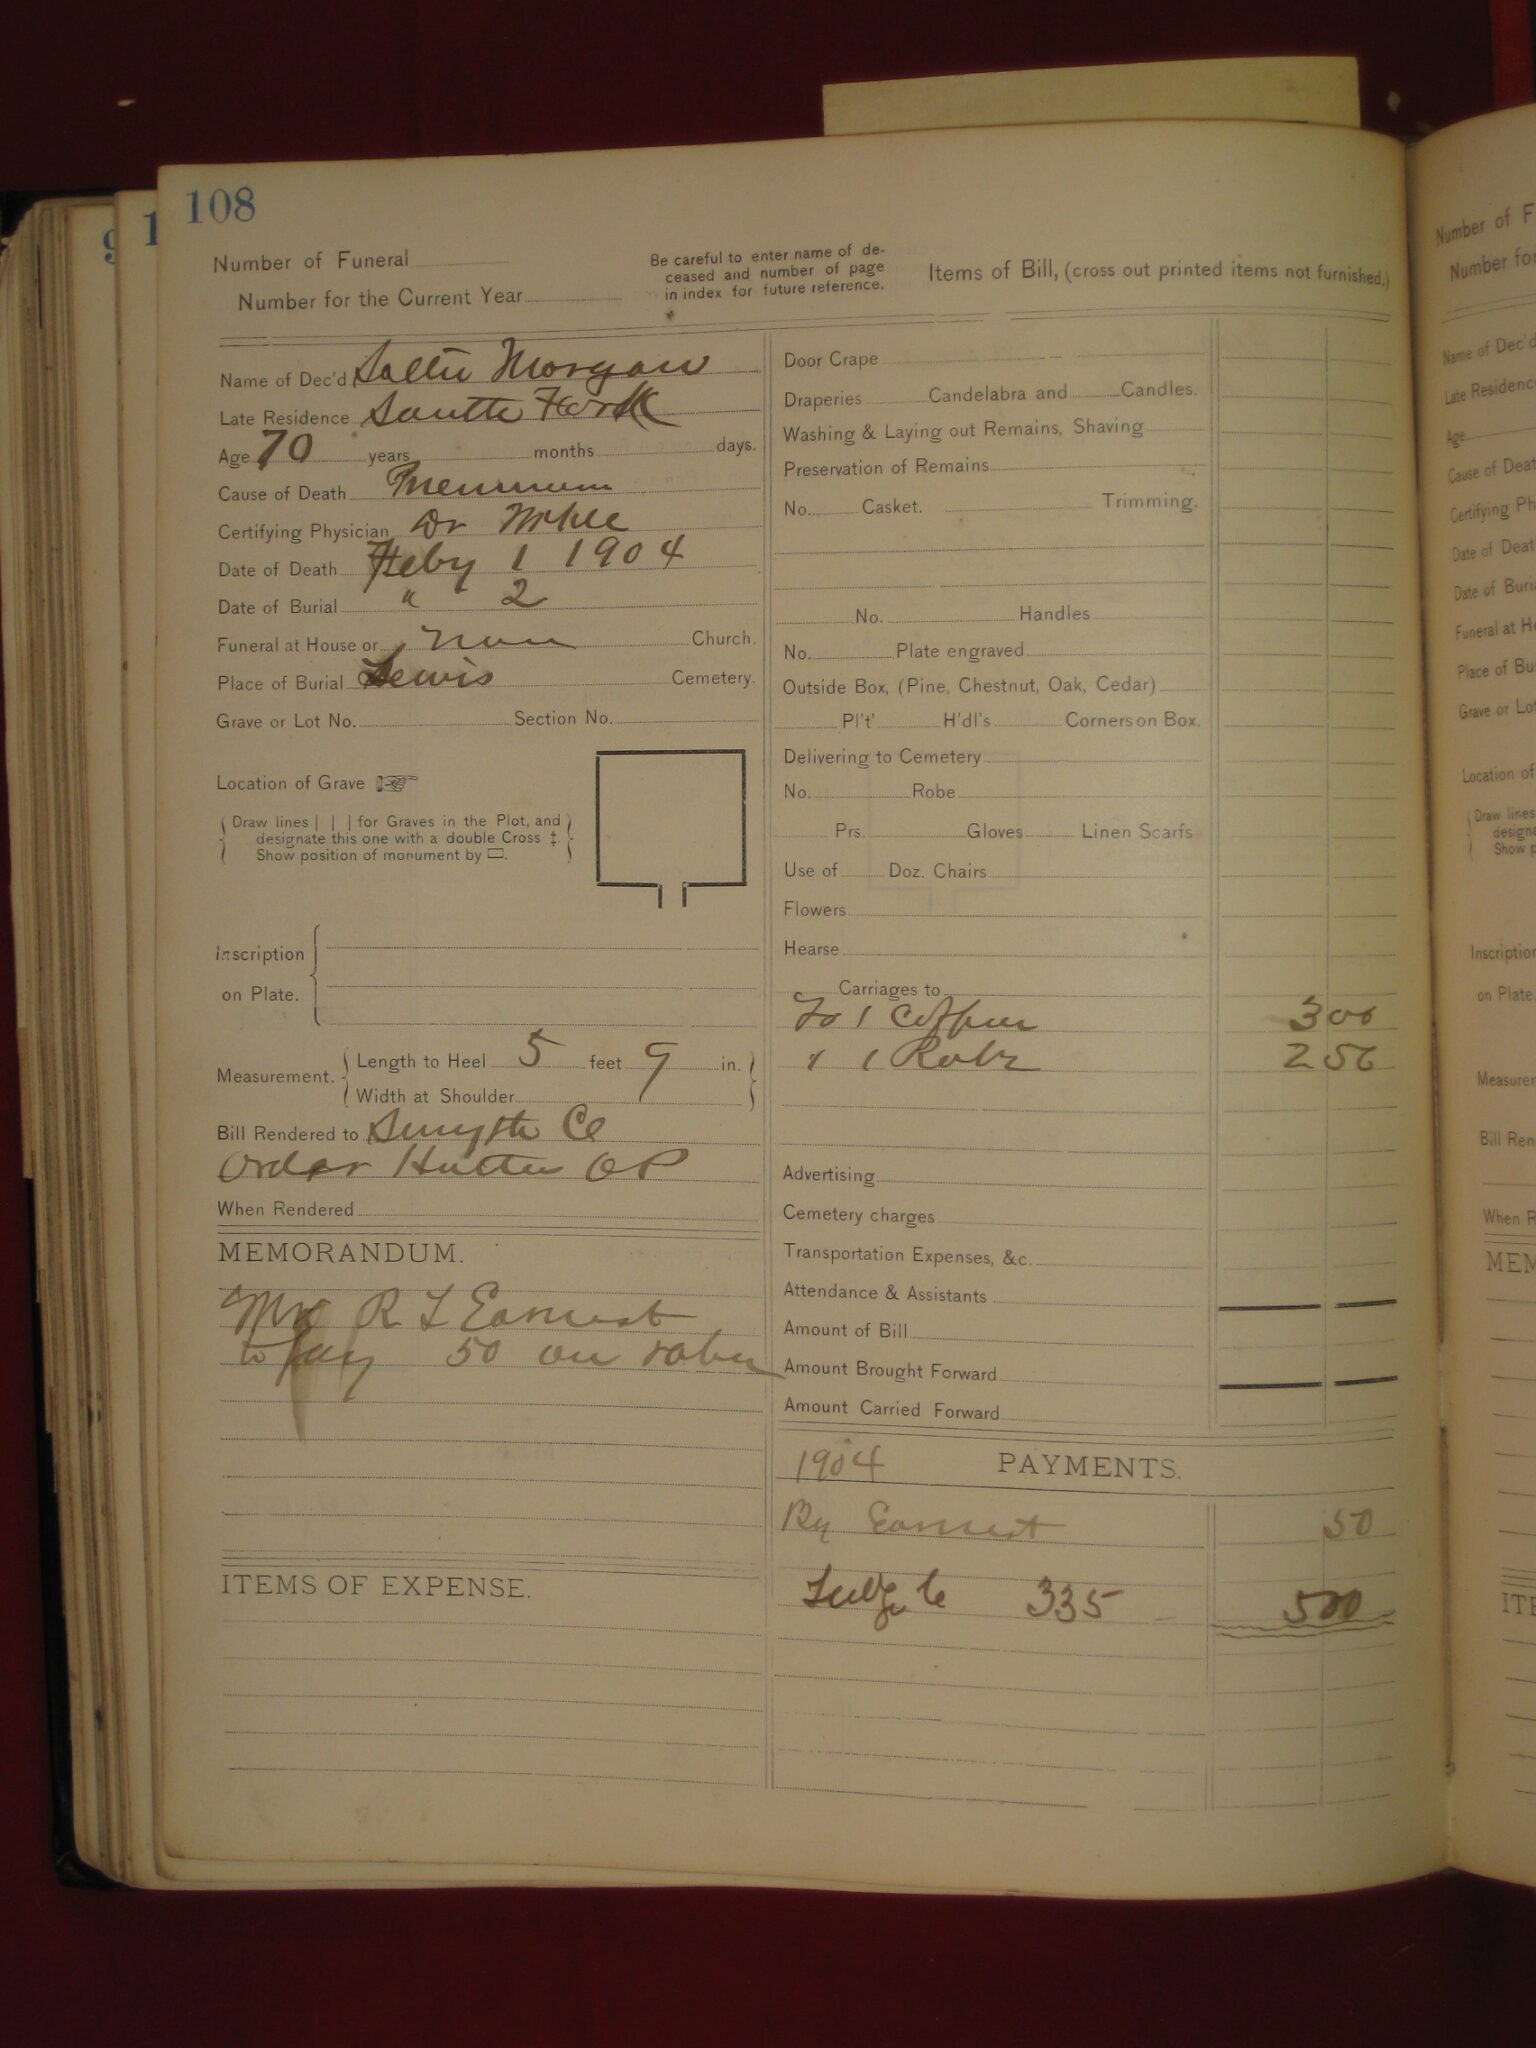 108
Number of Funeral
Number for the Current Year
Be careful to enter name of de-
ceased and number of page
in index for future reference.
Items of Bill, (cross out printed items not furnished.)
Name of Dec'd Sallie Morgan
Late Residence South Fork
Age 70 years months days.
Cause of Death
Certifying Physician Dr
Date of Death Feby 1 1904
Date of Burial " 2
Funeral at House or Church.
Place of Burial Lewis Cemetery.
Grave or Lot No. Section No.
Location of Grave
Draw lines | | | for Graves in the Plot, and
designate this one with a double Cross ‡.
Show position of monument by ▭.
Inscription
on Plate.
Measurement. Length to Heel 5 feet 9 in.
Width at Shoulder
Bill Rendered to Smyth Co
Order O P
When Rendered
MEMORANDUM.
R L Earnest
to pay 50 on robe
ITEMS OF EXPENSE.
Door Crape
Draperies Candelabra and Candles.
Washing & Laying out Remains, Shaving
Preservation of Remains
No. Casket. Trimming.
No. Handles
No. Plate engraved
Outside Box, (Pine, Chestnut, Oak, Cedar)
Pl't' H'dl's Corners on Box.
Delivering to Cemetery
No. Robe
Prs. Gloves Linen Scarfs
Use of Doz. Chairs
Flowers
Hearse
Carriages to
To 1 Coffin 3 00
" 1 Robe 2 50
Advertising
Cemetery charges
Transportation Expenses, &c.
Attendance & Assistants
Amount of Bill
Amount Brought Forward
Amount Carried Forward
1904 PAYMENTS.
By Earnest 50
335 5 00
Number of F
Number for
Name of Dec'd
Late Residence
Age
Cause of Death
Certifying Ph
Date of Death
Date of Buria
Funeral at Ho
Place of Bu
Grave or Lot
Location of
Draw lines
designa
Show p
Inscription
on Plate
Measurem
Bill Ren
When R
MEM
ITE